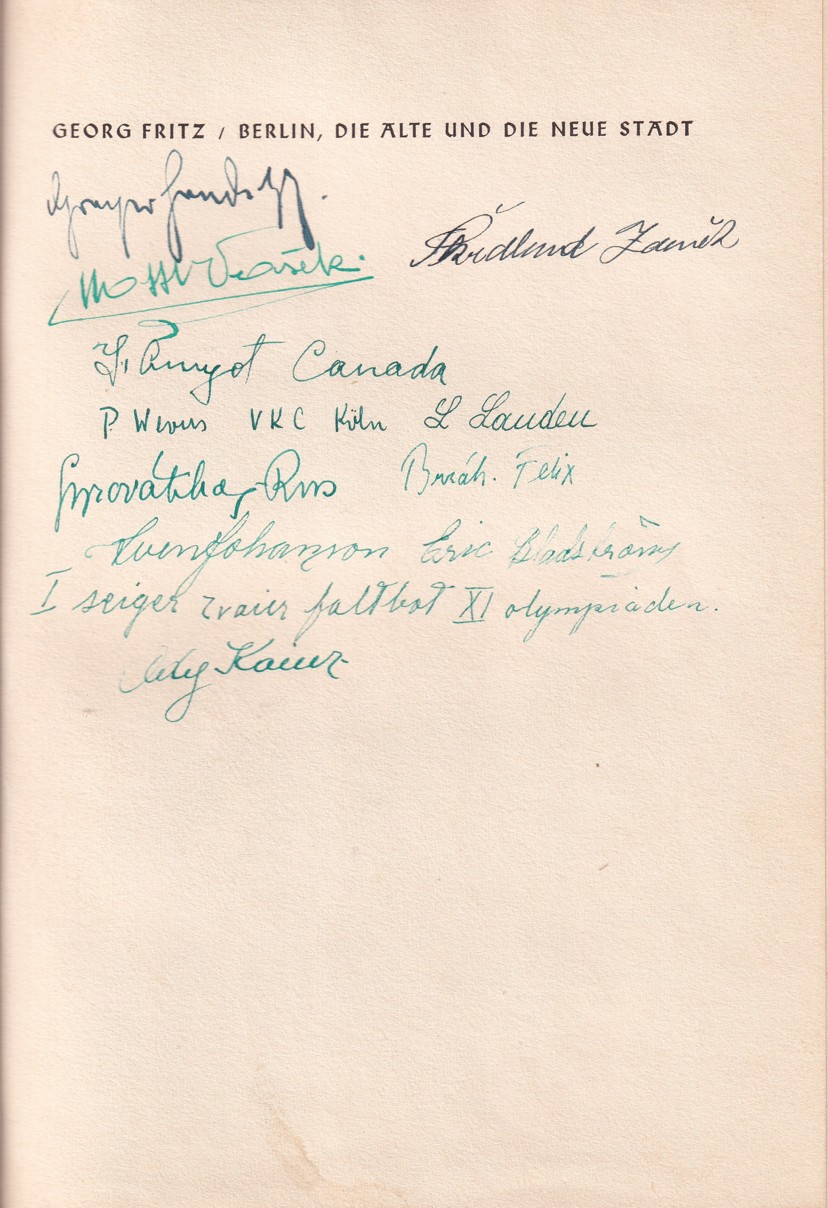 GEORG FRITZ / BERLIN, DIE ALTE UND DIE NEUE STADT
Mottl Vašek.
Zdeněk
Amyot Canada
P Wevers VKC Köln L Landen
Brzák. Felix
Sven Johanson Eric Bladström
I seiger zvaier faltbot XI olympiaden.
Ady Kainz